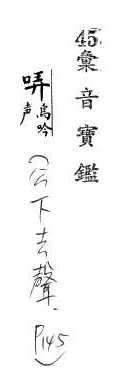 45彙音寶鑑
哢 鳥吟声
(公下去聲.P145)